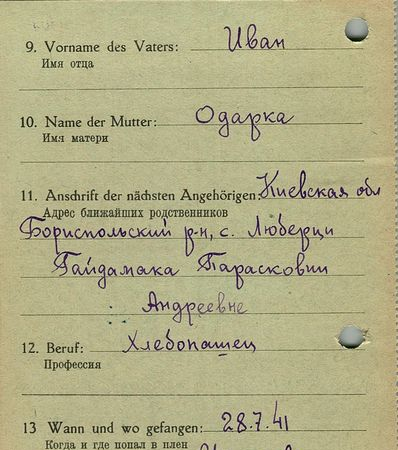 9. Vorname des Vaters: Иван
Имя отца
10. Name der Mutter: Одарка
Имя матери
11. Anschrift der nächsten Angehörigen: Киевская обл
Адрес ближайших родственников
Бориспольский р-н, с. Люберци
Гайдамака Парасковии
Андреевне
12. Beruf: Хлебопашец
Профессия
13 Wann und wo gefangen: 28.7.41
Когда и где попал в плен